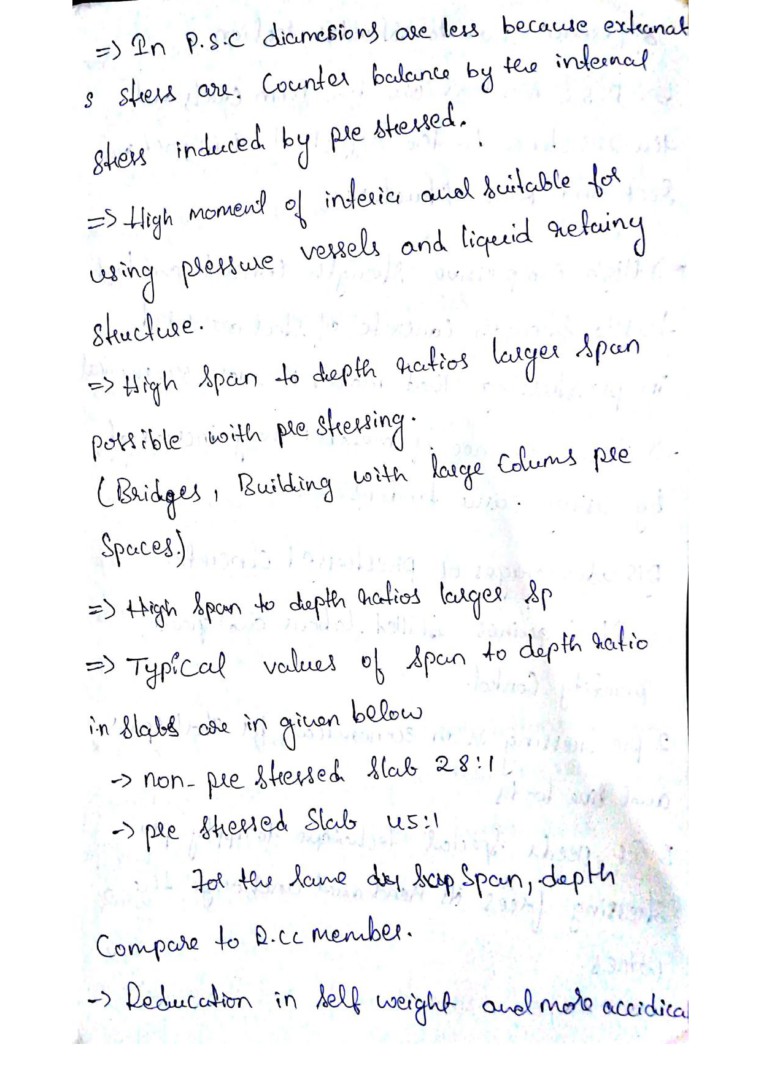 => In P.S.C diamesions are less because extranat
s stress are. Counter balance by the internal
stress induced by pre stressed.
=> High moment of interia and suitable for
using pressure vessels and liquid retainy
structure.
=> High span to depth ratios larger span
possible with pre stressing.
(Bridges, Building with large Colums pre
Spaces.)
=> High span to depth ratios larger sp
=> Typical values of span to depth ratio
in slabs are in given below
-> non-pre stressed slab 28:1
-> pre stressed slab 45:1
For the same span, depth
Compare to R.cc member.
-> Reducation in self weight and more accidical